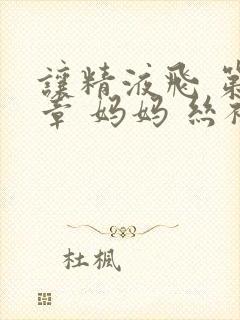 讓精液飛 第
章 妈妈 丝
杜楓